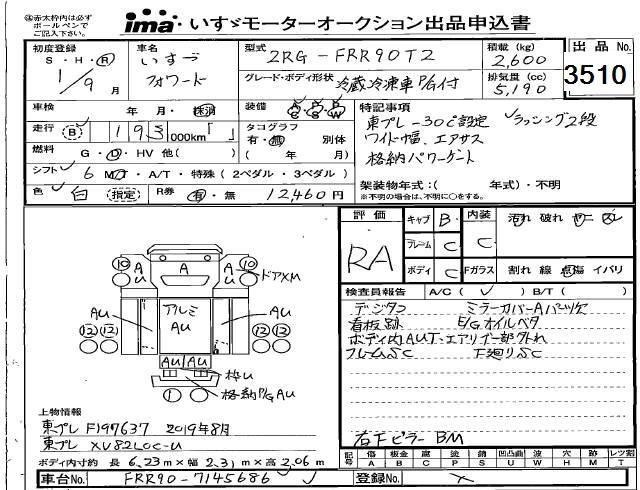 ※赤太枠内は必ず
ボールペンで
ご記入下さい。
ima いすゞモーターオークション出品申込書
初度登録
S・H・R
1/9月
車名
いすゞ
フォワード
型式 2RG-FRR90T2
グレード・ボディ形状 冷蔵冷凍車P/G付
積載 (kg)
2,600
排気量 (cc)
5,190
出品 No.
3510
車検 年 月・抹消
装備
走行 (B) 193,000km「 」
タコグラフ
有・無 別体
( 年 月)
燃料 G・D・HV 他( )
シフト 6 MT・A/T・特殊 (2ペダル・3ペダル)
色 白 (指定) R券 有・無 12,460円
特記事項
東プレ-30℃設定 ラッシング2段
ワイド幅、エアサス
格納パワーゲート
架装物年式:( 年式)・不明
※不明の場合は、不明に○をする。
評価
RA
キャブ B
フレーム C
ボディ C
内装 C
Fガラス
汚れ 破れ ヤニ スレ
割れ 線 点傷 イバリ
検査員報告 A/C( ✓ ) B/T( )
デジタコ ミラーカバーAパーツ欠
看板跡 E/Gオイルベタ
ボディ内AUT、エアリナー部外れ
フレームSC 下廻りSC
右下ピラーBM
10 AU A AU 10 ドアXM
AU アルミ AU AU
12 12 12 12
AU AU 枠U
格納P/G AU
1
上物情報
東プレ F197637 2019年8月
東プレ XV82LOC-U
ボディ内寸約 長 6.23m×幅 2.31m×高 2.06m
記号
傷 板金 腐 塗 錆 凹凸曲 波 穴 ﾒｸﾚ ﾚﾂ割
A B C P S U W H M T
車台No. FRR90-7145686
登録No.